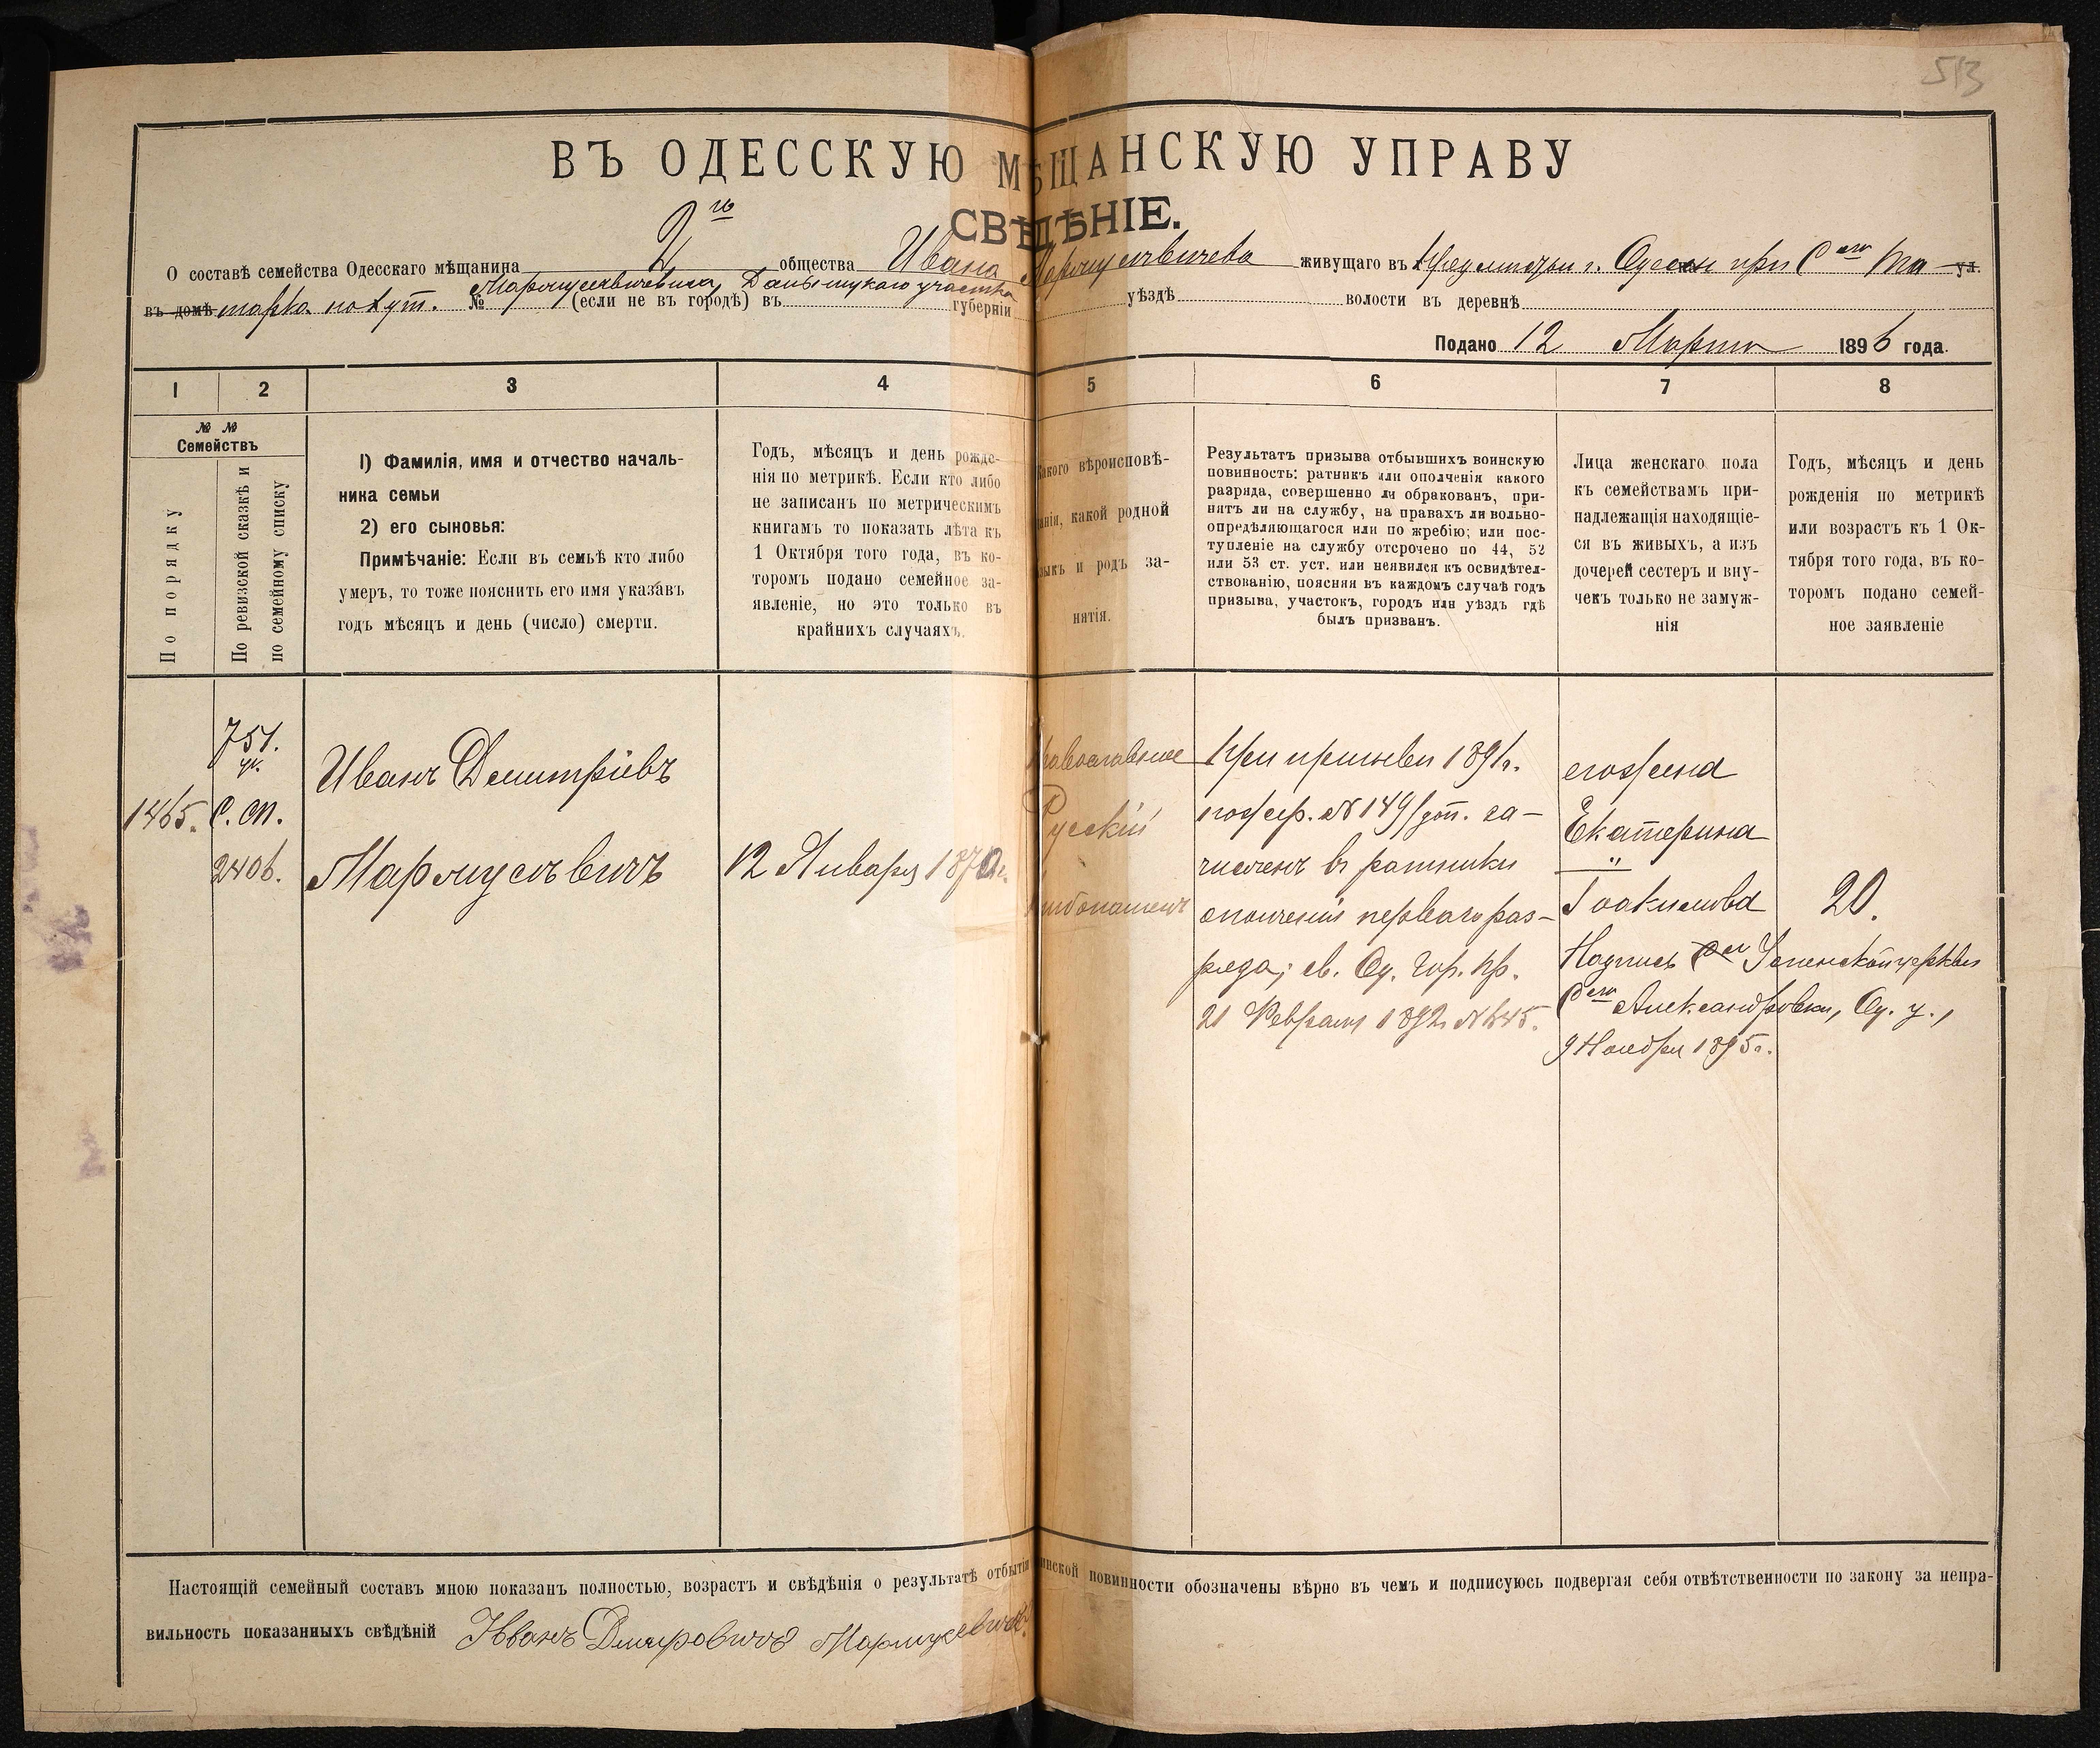 513
ВЪ ОДЕССКУЮ МѢЩАНСКУЮ УПРАВУ
СВѢДѢНІЕ.
О составѣ семейства Одесскаго мѣщанина 2го общества Ивана живущаго въ Предместьи г. Одессы при Сели Та ул.
въ домѣ тарка. по хут. № (если не въ городѣ) въ губерніи уѣздѣ волости въ деревнѣ
Подано 12 Марта 1896 года.
1 2 3 4 5 6 7 8
№ № Семействъ
По порядку
По ревизской сказкѣ и по семейному списку
1) Фамилія, имя и отчество началь-
ника семьи
2) его сыновья:
Примѣчаніе: Если въ семьѣ кто либо
умеръ, то тоже пояснить его имя указавъ
годъ мѣсяцъ и день (число) смерти.
Годъ, мѣсяцъ и день рожде-
нія по метрикѣ. Если кто либо
не записанъ по метрическимъ
книгамъ то показать лѣта къ
1 Октября того года, въ ко-
торомъ подано семейное за-
явленіе, но это только въ
крайнихъ случаяхъ.
Какого вѣроисповѣ-
данія, какой родной
языкъ и родъ за-
нятія.
Результатъ призыва отбывшихъ воинскую
повинность: ратникъ или ополченія какого
разряда, совершенно ли обракованъ, при-
нятъ ли на службу, на правахъ ли вольно-
опредѣляющагося или по жребію; или пос-
тупленіе на службу отсрочено по 44, 52
или 53 ст. уст. или неявился къ освидѣтел-
ствованію, поясняя въ каждомъ случаѣ годъ
призыва, участокъ, городъ или уѣздъ гдѣ
былъ призванъ.
Лица женскаго пола
къ семействамъ при-
надлежащія находящіе-
ся въ живыхъ, а изъ
дочерей сестеръ и вну-
чекъ только не замуж-
нія
Годъ, мѣсяцъ и день
рожденія по метрикѣ
или возрастъ къ 1 Ок-
тября того года, въ ко-
торомъ подано семей-
ное заявленіе
751.
1465. С. сп.
2406.
Иванъ Димитріевъ
12 Января 1870г.
Православное
Русскій
Хлѣбопашецъ
При призывѣ 1891г.
по жер. № 149 за-
численъ въ ратники
ополченія перваго раз-
ряда; св. Од. Гор. Пр.
21 Февраля 1892 № 645.
его жена
Екатерина
"
Іоакимова
20.
Надпись Успенской церкви
Александровки, Од. у.,
9 Ноября 1895г.
Настоящій семейный составъ мною показанъ полностью, возрастъ и свѣдѣнія о результатѣ отбытія воинской повинности обозначены вѣрно въ чемъ и подписуюсь подвергая себя отвѣтственности по закону за непра-
вильность показанныхъ свѣдѣній Иванъ